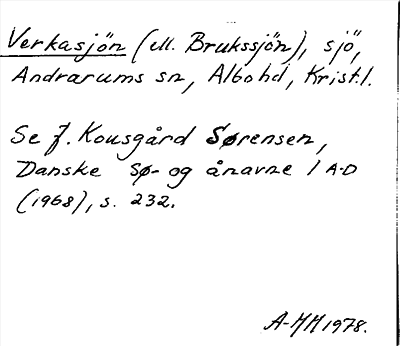 Verkasjön (ell. Brukssjön), sjö,
Andrarums sn, Albo hd, Krist. l.
Se J. Kousgård Sørensen,
Danske sø- og ånavne 1 A-D
(1968), s. 232.
A-MM 1978.